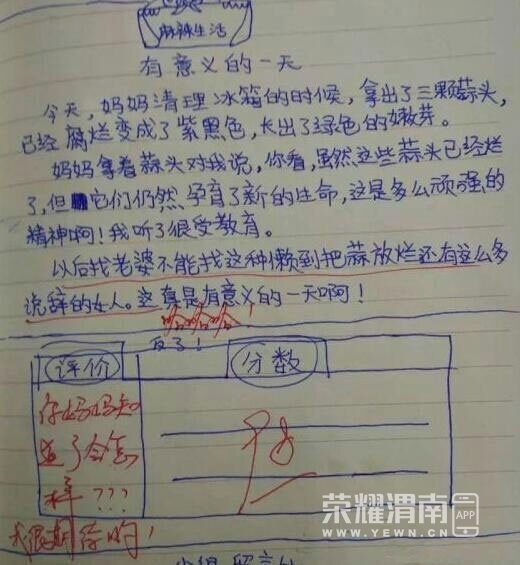 麻辣生活
有意义的一天
今天，妈妈清理冰箱的时候，拿出了三颗蒜头，
已经腐烂变成了紫黑色，长出了绿色的嫩芽。
妈妈拿着蒜头对我说，你看，虽然这些蒜头已经烂
了，但它们仍然孕育了新的生命，这是多么顽强的
精神啊！我听了很受教育。
以后找老婆不能找这种懒到把蒜放烂还有这么多
说辞的女人。这真是有意义的一天啊！
哈哈哈
反了！
评价
分数
你妈妈知
道了会怎
样？？？
我很期待哟！
优
荣耀渭南 APP
WWW.YEWN.CN